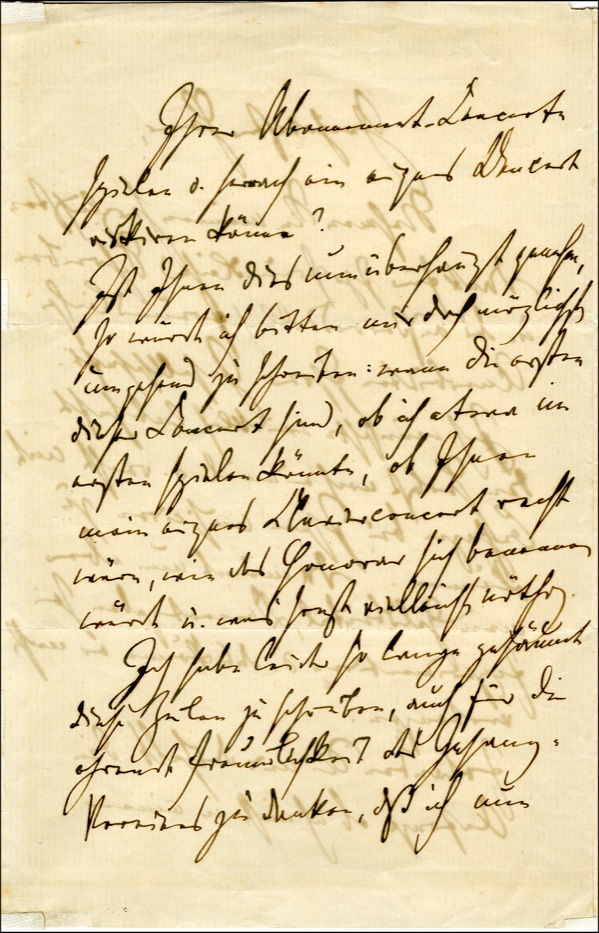 Ihrer Abonnement-Concerte
spielen u. hernach ein eignes Concert
riskiren könne?
Ist Ihnen dies nun überhaupt genehm,
so würde ich bitten mir doch möglichst
umgehend zu schreiben: wann die ersten
dieser Concerte sind, ob ich etwa im
ersten spielen könnte, ob Ihnen
mein eignes Klavierconcert recht
wäre, wie das Honorar sich benennen
würde u. was sonst vielleicht nöthig.
Ich habe leider so lange gesäumt
diese Zeilen zu schreiben, auch für die
ehrende Freundlichkeit des Gesang-
Vereines zu danken, daß ich nun